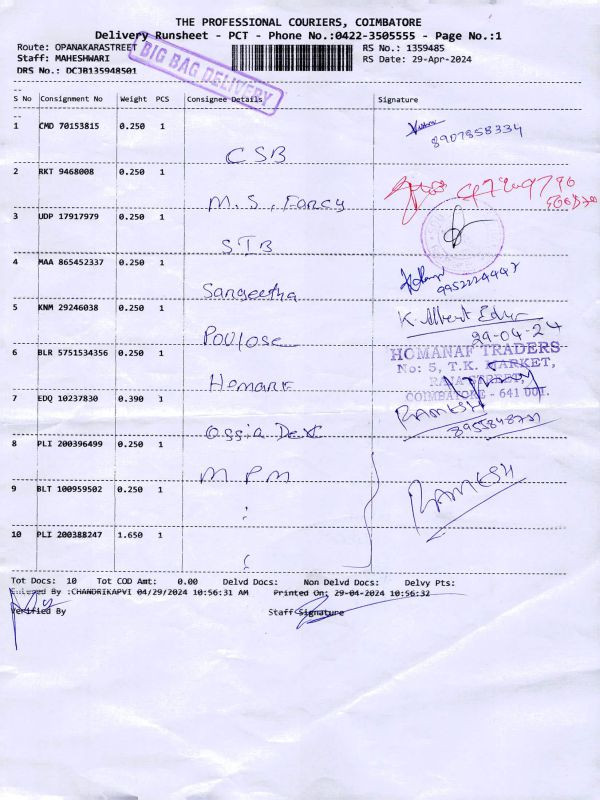 THE PROFESSIONAL COURIERS, COIMBATORE
Delivery Runsheet - PCT - Phone No.:0422-3505555 - Page No.:1
Route: OPANAKARASTREET RS No.: 1359485
Staff: MAHESHWARI RS Date: 29-Apr-2024
DRS No.: DCJB135948501
BIG BAG DELIVERY
S No Consignment No Weight PCS Consignee Details Signature
1 CMD 70153815 0.250 1 CSB 8907858334
2 RKT 9468008 0.250 1 M.S. Fancy
3 UDP 17917979 0.250 1 STB
4 MAA 865452337 0.250 1 Sangeetha
5 KNM 29246038 0.250 1 Poulose K. Albert
29-04-24
6 BLR 5751534356 0.250 1
HOMANAF TRADERS
No: 5, T.K. MARKET,
COIMBATORE - 641 001.
7 EDQ 10237830 0.390 1 RAMESH
8 PLI 200396499 0.250 1 MPM
9 BLT 100959502 0.250 1 RAMESH
10 PLI 200388247 1.650 1
Tot Docs: 10 Tot COD Amt: 0.00 Delvd Docs: Non Delvd Docs: Delvy Pts:
Entered By :CHANDRIKAPVI 04/29/2024 10:56:31 AM Printed On: 29-04-2024 10:56:32
Verified By Staff Signature